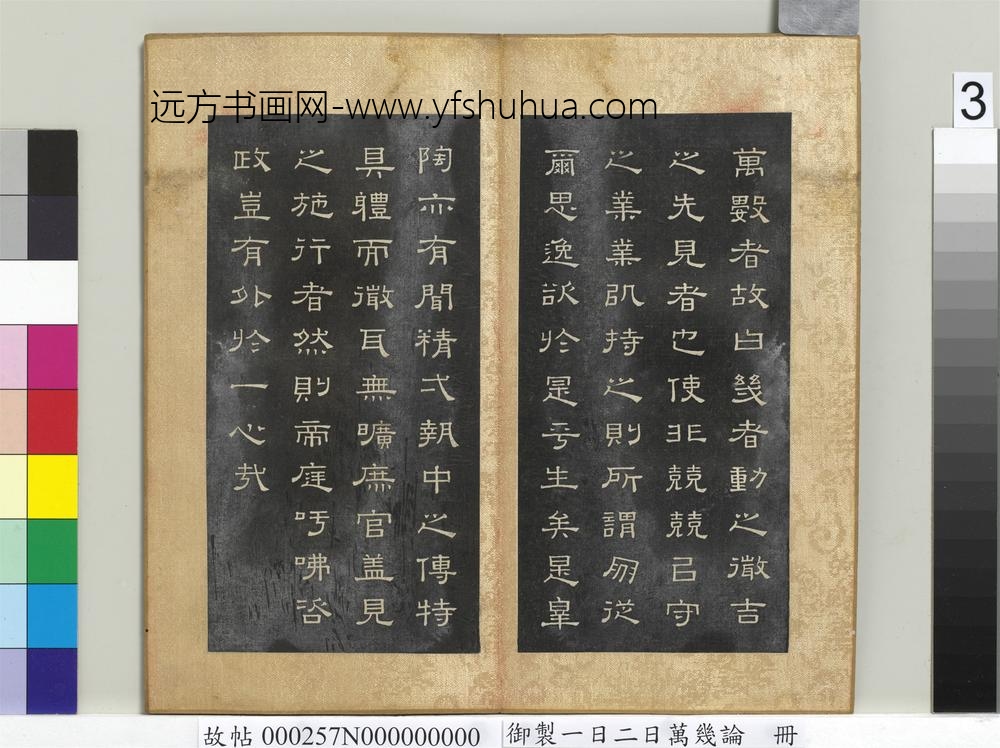 远方书画网-www.yfshuhua.com
3
萬數者故曰幾者動之微吉
之先見者也使非兢兢㠯守
之業業以持之則所謂朋從
爾思逸欲於是乎生矣是皋
陶亦有聞精弌執中之傳特
具體而微耳無曠庶官盖見
之施行者然則帝庭吁咈咨
政豈有外於一心哉
故帖 000257N000000000 御製一日二日萬幾論 冊